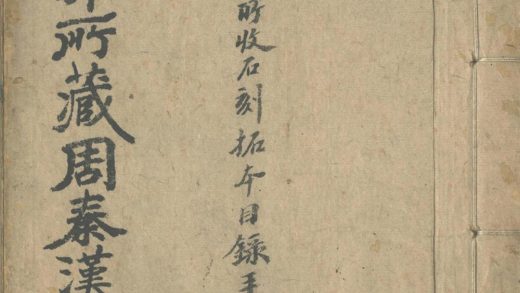 所收石刻拓本目錄
所藏周秦漢